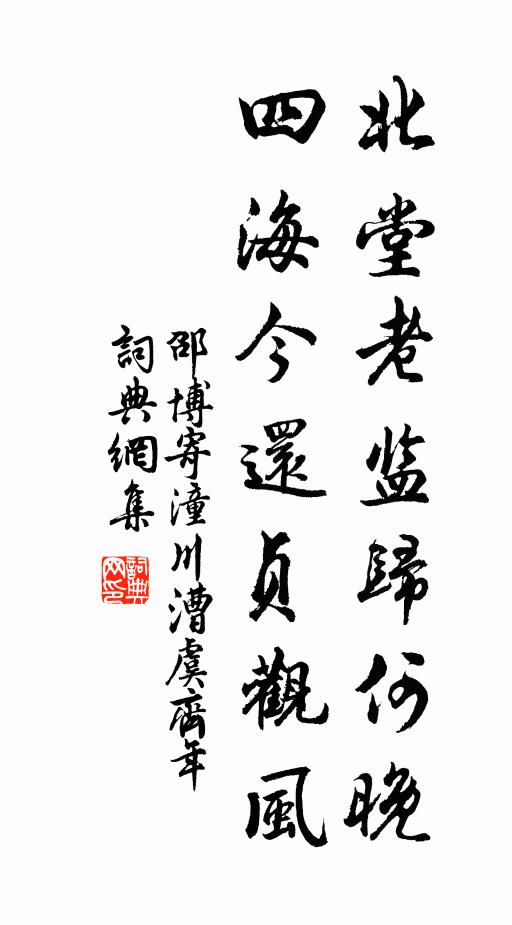 北堂老监歸何晚
四海今還貞觀風
邵博寄潼川漕虞齊年
詞典網集
詞典网印